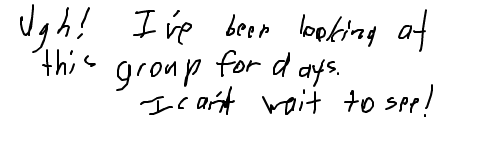 Ugh! I've been looking at
this group for days.
I can't wait to see!